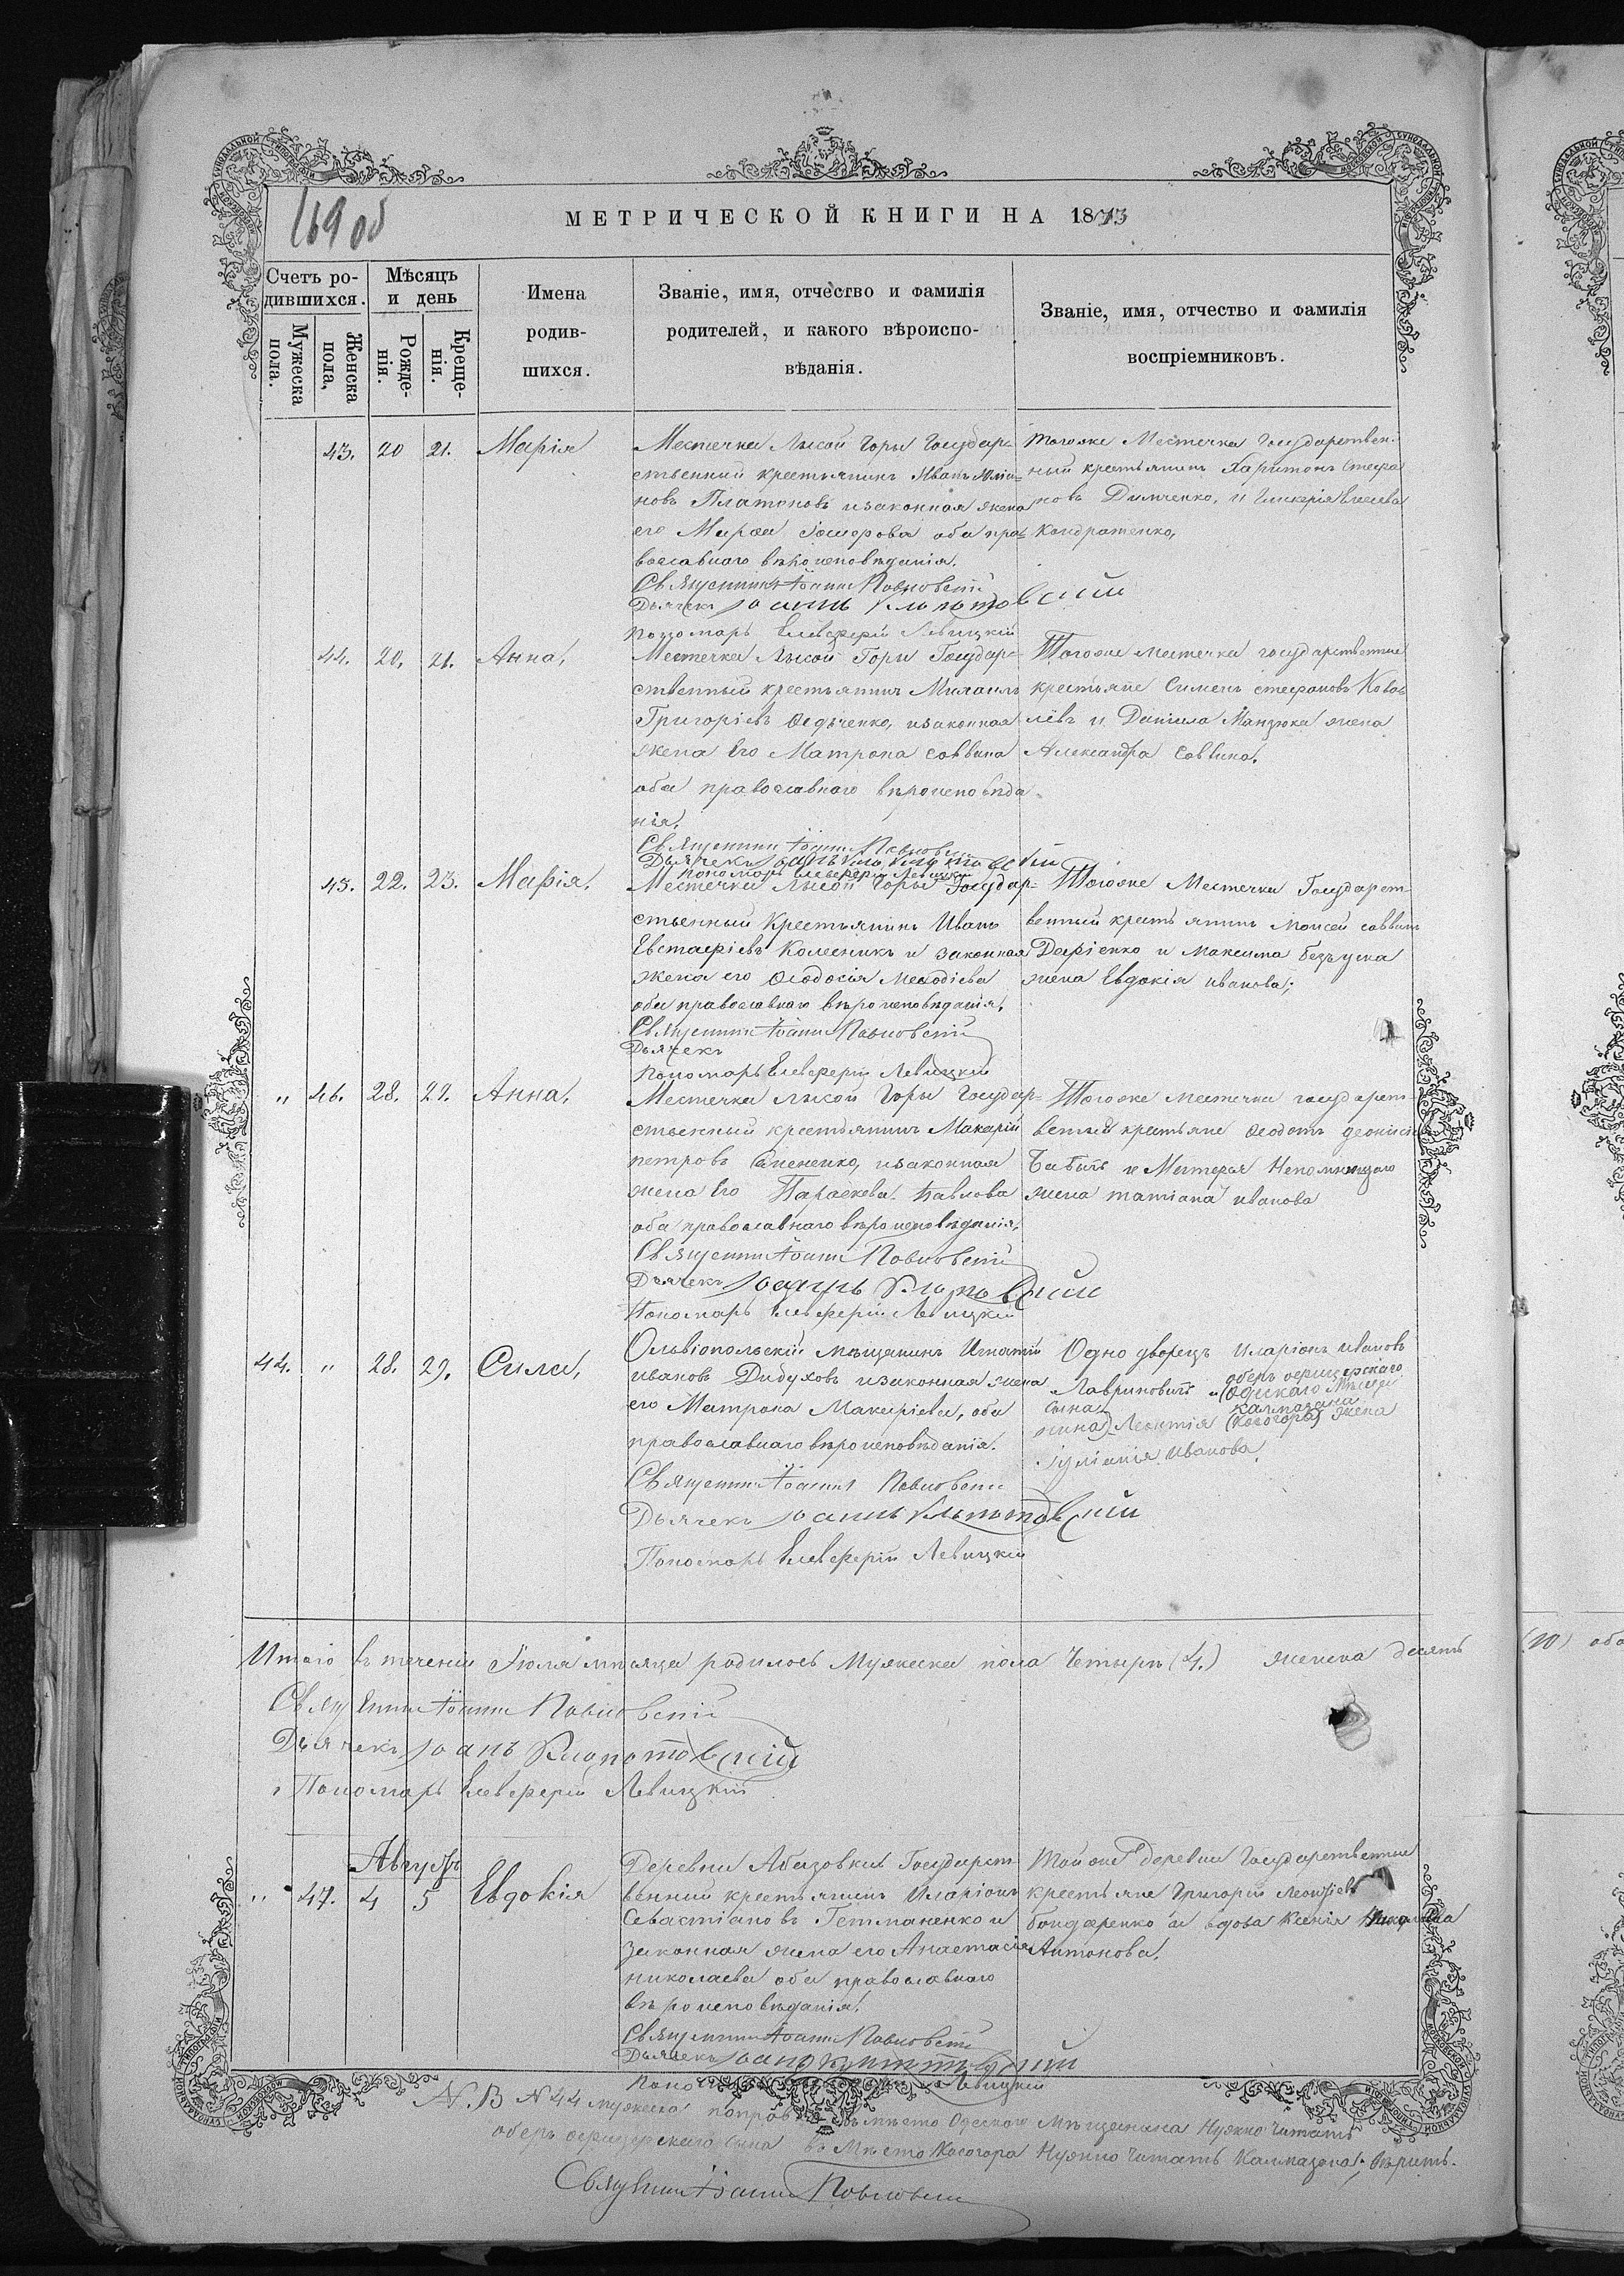 169 об
МЕТРИЧЕСКОЙ КНИГИ НА 1873
Счетъ ро-
дившихся.
Мужеска
пола.
Женска
пола,
Мѣсяцъ
и день
Рожде-
нія.
Креще-
нія.
Имена
родив-
шихся.
Званіе, имя, отчество и фамилія
родителей, и какого вѣроиспо-
вѣданія.
Званіе, имя, отчество и фамилія
воспріемниковъ.
43. 20 21. Марія
Местечка Лысой Горы Государ-
ственный крестьянинъ Иванъ
новъ Платоновъ и законная жена
его оба пра-
вославнаго вѣроисповѣданія.
Священникъ Іоаннъ
Дьячекъ Іоаннъ Клопотовскій
Пономарь Елевферій Левицкій
Тогоже Местечка Государствен-
ный крестьянинъ Харитонъ Стефа
новъ Димченко, и Гликерія
Кондратенко,
44. 20. 21. Анна,
Местечка Лысой Горы Государ-
ственный крестьянинъ Михаилъ
Григоріевъ Ѳедьченко, и законная
жена Его Матрона Саввина
оба православнаго вѣроисповѣда
нія.
Священникъ Іоаннъ
Дьячекъ Іоаннъ Клопотовскій
Пономарь Елевферій Левицкій
Тогоже местечка государственные
крестьяне Симеонъ Стефановъ Кова
лёвъ и Даніила Манзюка жена
Александра Саввина.
45. 22. 23. Марія.
Местечка Лысой Горы Государ-
ственный Крестьянинъ Иванъ
Евстафіевъ Колесникъ и законная
жена его Ѳеодосія Меѳодіева
оба православнаго вѣроисповѣданія.
Священникъ Іоаннъ
Дьячекъ
Пономарь Елевферій Левицкій
Тогоже Местечка Государст
венный крестьянинъ Моисей Саввинъ
Даріенко и Максима Безъума
жена Евдокія Иванова;
" 46. 28. 29. Анна.
Местечка Лысой Горы Государ-
ственный крестьянинъ Макарій
Петровъ и законная
жена Его Параскева Павлова
оба православнаго вѣроисповѣданія.
Священникъ Іоаннъ
Дьячекъ Іоаннъ Клопотовскій
Пономарь Елевферій Левицкій
Тогоже местечка государст
венные крестьяне Ѳеодотъ
Бабичъ и
жена Татіана Иванова
44. " 28. 29. Сила,
Ольвіопольскій мѣщанинъ Игнатій
Ивановъ Дибуховъ и законная жена
его Матрона Макаріева, оба
православнаго вѣроисповѣданія.
Священникъ Іоаннъ
Дьячекъ Іоаннъ Клопотовскій
Пономарь Елевферій Левицкій
Одно дворецъ Иларіонъ Ивановъ
оберъ офицерскаго
Лавриновичъ и (Одескаго Мѣща
сына Калмазана
нина) Леонтія (Косогора) жена
Іуліанія Иванова.
Итого въ теченіи Іюля мѣсяца родилось Мужеска пола Четыре (4.) женска десять (10) обо
Священникъ Іоаннъ
Дьячекъ Іоаннъ Клопотовскій
Пономарь Елевферій Левицкій
Августъ
" 47. 4 5 Евдокія
Деревни Абазовки Государст
венный крестьянинъ Иларіонъ
Севастіановъ Гетманенко и
законная жена его Анастасія
Николаева оба православнаго
вѣроисповѣданія.
Священникъ Іоаннъ
Дьячекъ Іоаннъ Клопотовскій
Левицкій
Той же деревни Государственные
крестьяне Григорій Леонтіевъ
Бондаренко и вдова Ксенія
Антонова.
N.B N 44 мужеска вмѣсто Одескаго Мѣщанина Нужно Читать
оберъ офицерскаго сына вмѣсто Косогора Нужно Читать Калмазана; вѣрить.
Священникъ Іоаннъ